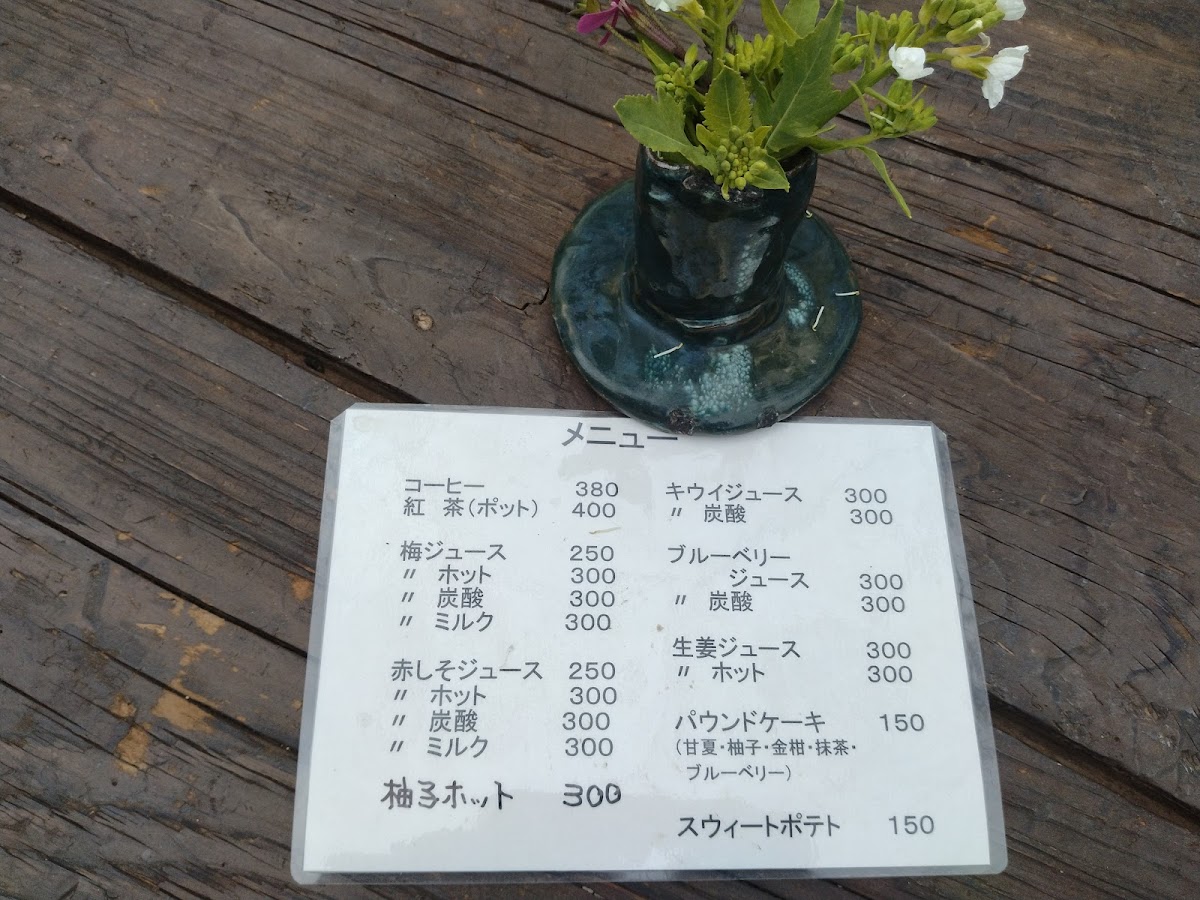 メニュー
コーヒー 380
紅 茶(ポット) 400
梅ジュース 250
〃 ホット 300
〃 炭酸 300
〃 ミルク 300
赤しそジュース 250
〃 ホット 300
〃 炭酸 300
〃 ミルク 300
柚子ホット 300
キウイジュース 300
〃 炭酸 300
ブルーベリー
ジュース 300
〃 炭酸 300
生姜ジュース 300
〃 ホット 300
パウンドケーキ 150
(甘夏・柚子・金柑・抹茶・
ブルーベリー)
スウィートポテト 150